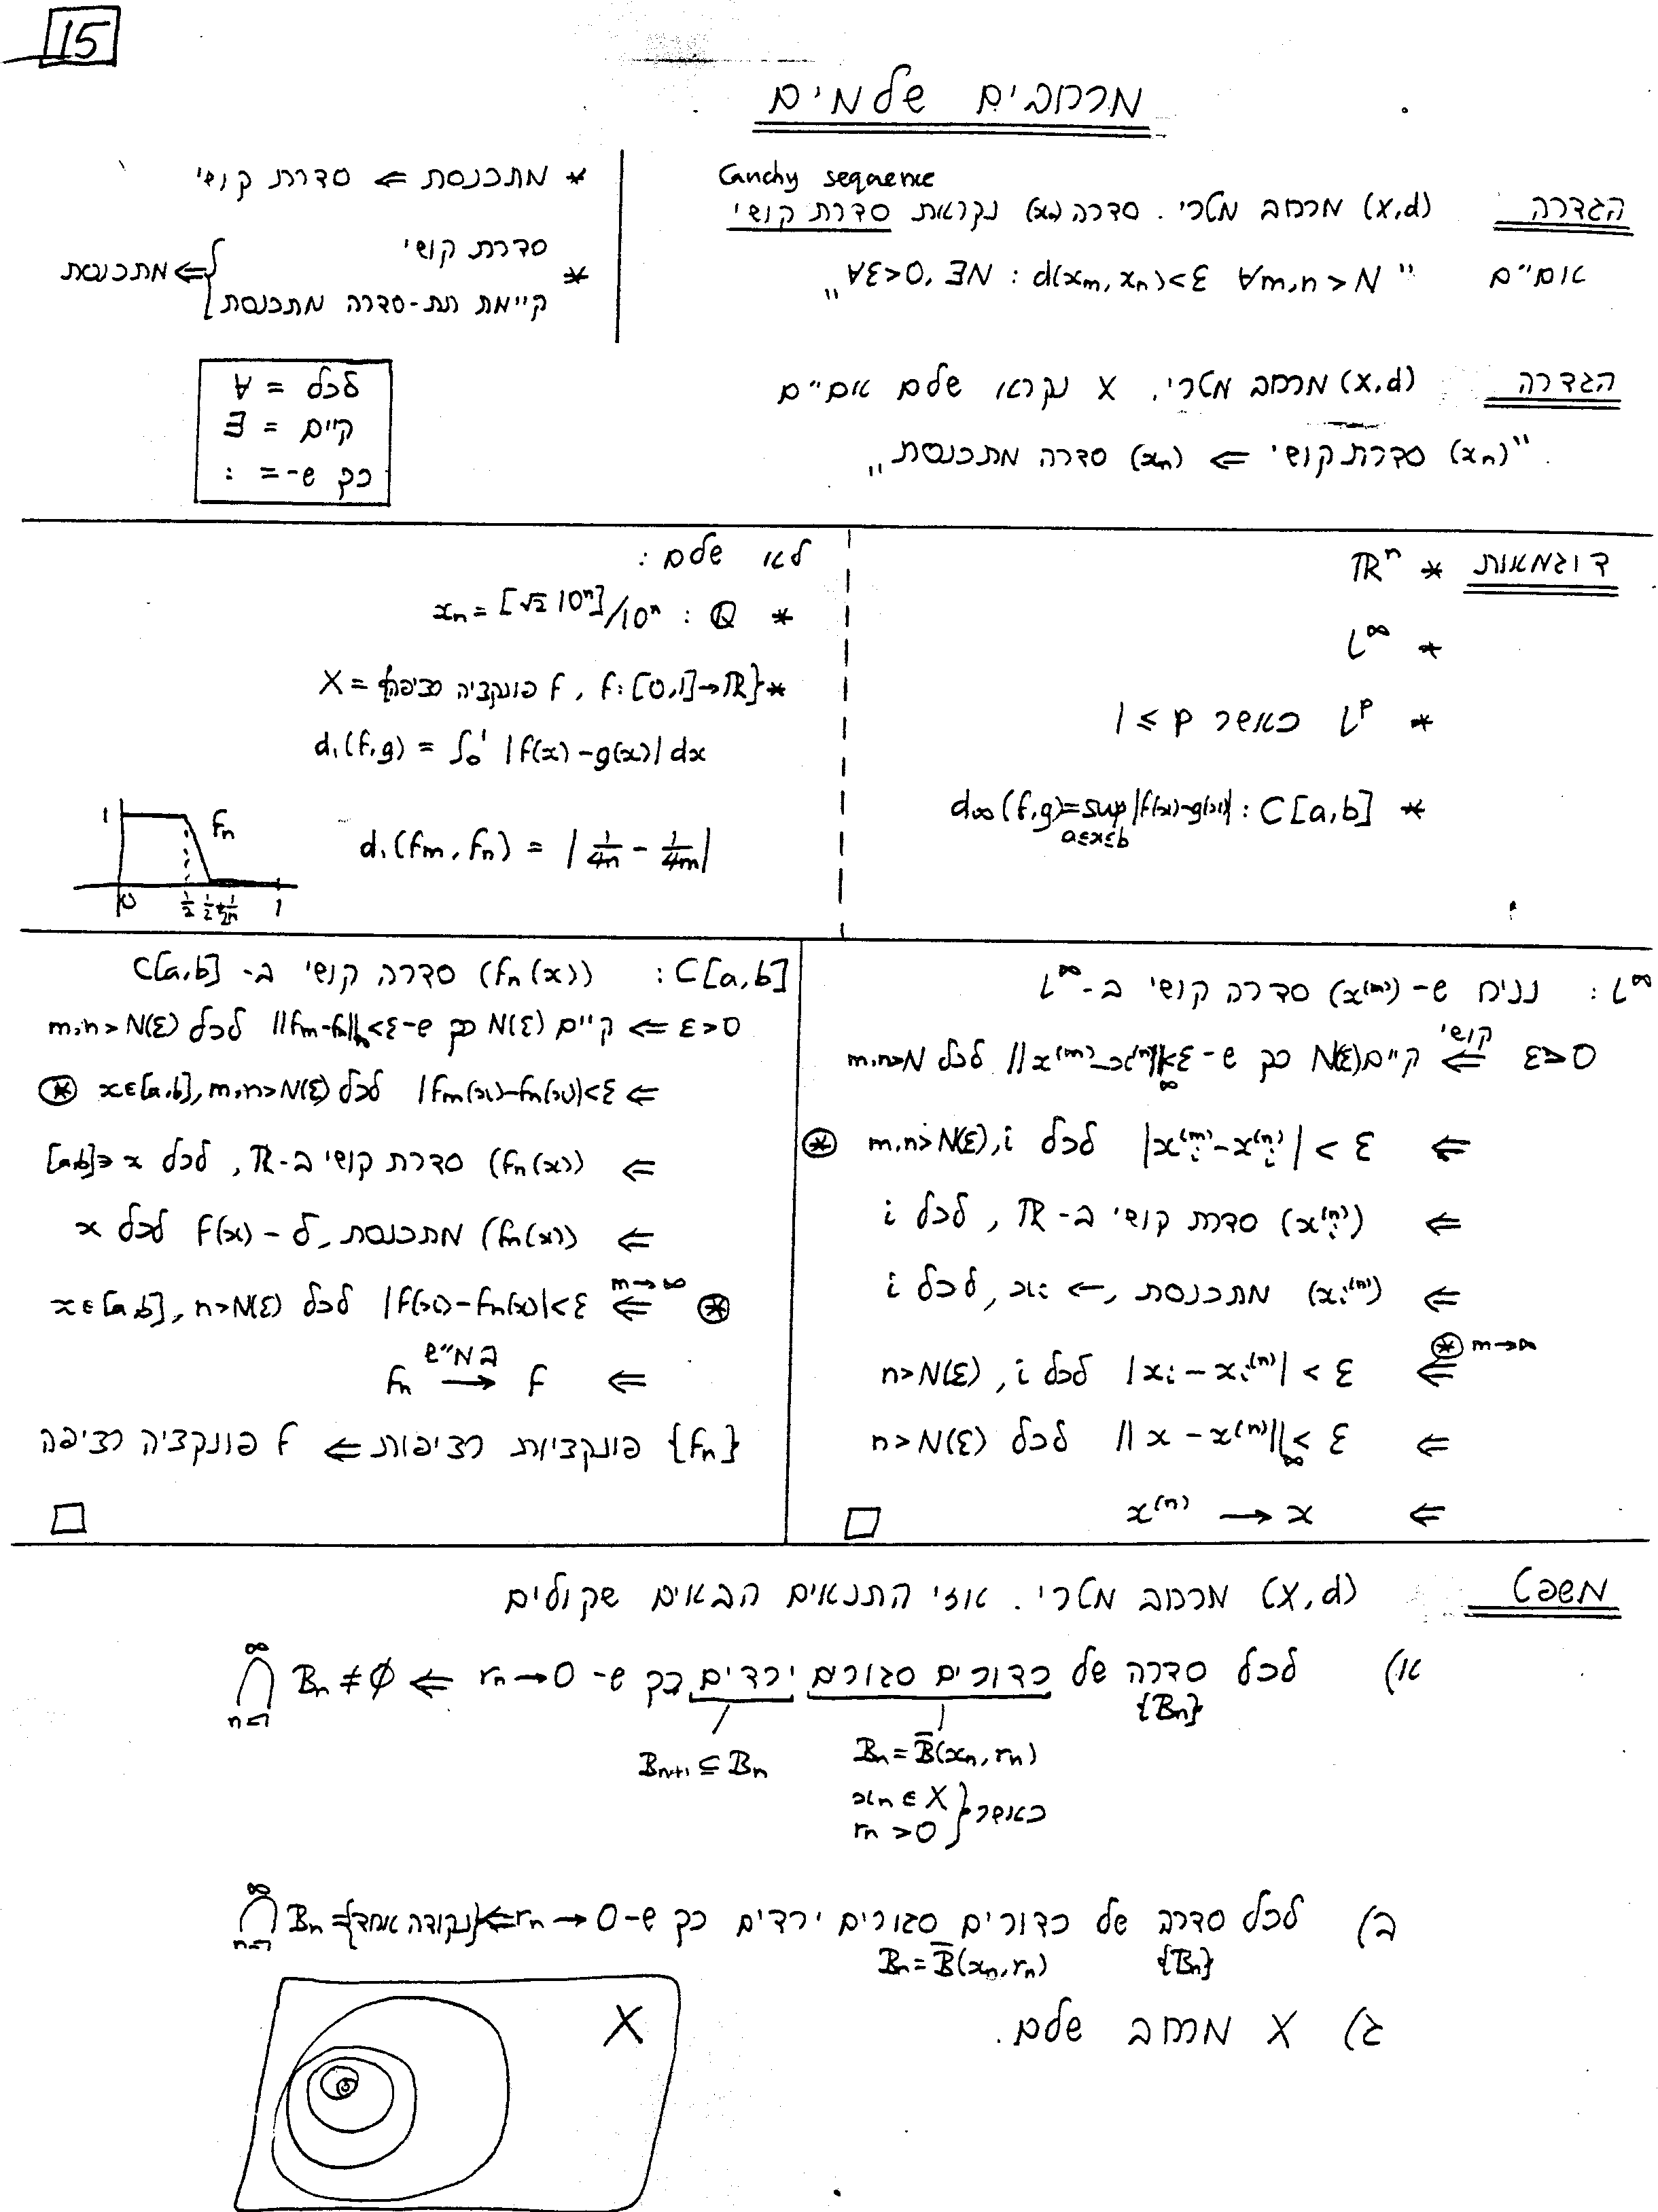 15
מרחבים שלמים
Cauchy sequence
הגדרה (X,d) מרחב מטרי. סדרה (xₙ) נקראת סדרת קושי
אם"ם "∀ε>0, ∃N : d(xₘ, xₙ)<ε ∀m,n > N"
* מתכנסת ⇐ סדרת קושי
* סדרת קושי
קיימת תת-סדרה מתכנסת } ⇐ מתכנסת
הגדרה (X,d) מרחב מטרי. X נקרא שלם אם"ם
"(xₙ) סדרת קושי ⇐ (xₙ) סדרה מתכנסת"
לכל = ∀
קיים = ∃
כך ש- = :
דוגמאות * ℝⁿ
* l^∞
* l^p כאשר 1 ≤ p
* C[a,b] : d∞(f,g) = sup |f(x)-g(x)|
a≤x≤b
לא שלם :
* ℚ : xₙ = [√2 10ⁿ]/10ⁿ
* X = {f פונקציה רציפה, f:[0,1]→ℝ}
d₁(f,g) = ∫₀¹ |f(x)-g(x)| dx
d₁(fₘ, fₙ) = | 1/4n - 1/4m |
1 fₙ
0 1/2 1/2+1/2n 1
l^∞ : נניח ש- (x^(m)) סדרה קושי ב- l^∞
ε>0 קושי ⇐ קיים N(ε) כך ש- ||x^(m)-x^(n)||∞<ε לכל m,n>N
⇐ |xᵢ^(m)-xᵢ^(n)| < ε לכל m,n>N(ε),i ⊛
⇐ (xᵢ^(n)) סדרת קושי ב-ℝ, לכל i
⇐ (xᵢ^(n)) מתכנסת, → xᵢ, לכל i
⊛ m→∞
⇐ |xᵢ - xᵢ^(n)| < ε לכל n>N(ε), i
⇐ ||x - x^(n)||∞ < ε לכל n>N(ε)
⇐ x^(n) → x
□
C[a,b] : (fₙ(x)) סדרה קושי ב- C[a,b]
ε>0 ⇐ קיים N(ε) כך ש- ||fₘ-fₙ||∞<ε לכל m,n>N(ε)
⇐ |fₘ(x)-fₙ(x)|<ε לכל x∈[a,b], m,n>N(ε) ⊛
⇐ (fₙ(x)) סדרת קושי ב-ℝ, לכל x∈[a,b]
⇐ (fₙ(x)) מתכנסת, ל- f(x) לכל x
⊛ m→∞ ⇐ |f(x)-fₙ(x)|<ε לכל x∈[a,b], n>N(ε)
⇐ fₙ → f במ"ש
{fₙ} פונקציות רציפות ⇐ f פונקציה רציפה
□
משפט (X,d) מרחב מטרי. אזי התנאים הבאים שקולים
א) לכל סדרה של כדורים סגורים יורדים כך ש- rₙ→0 ⇐ ⋂_{n=1}^∞ Bₙ ≠ ∅
{Bₙ}
Bₙ = B̄(xₙ, rₙ)
כאשר { xₙ ∈ X
rₙ > 0
Bₙ₊₁ ⊆ Bₙ
ב) לכל סדרה של כדורים סגורים יורדים כך ש- rₙ→0 ⇐ ⋂_{n=1}^∞ Bₙ = {נקודה אחד}
{Bₙ} Bₙ = B̄(xₙ, rₙ)
ג) X מרחב שלם.
X